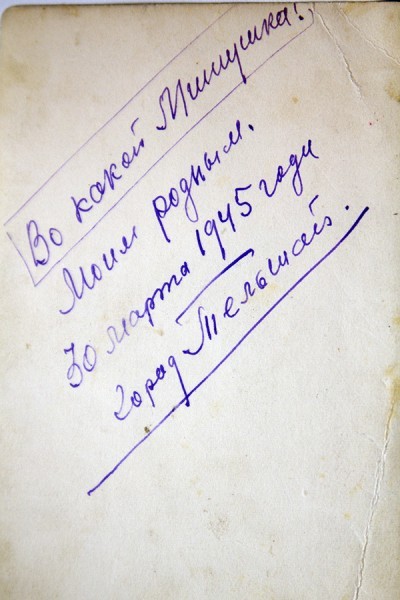 Во какой Мишушка!
Моим родным.
30 марта 1945 годи
город Тельшай.